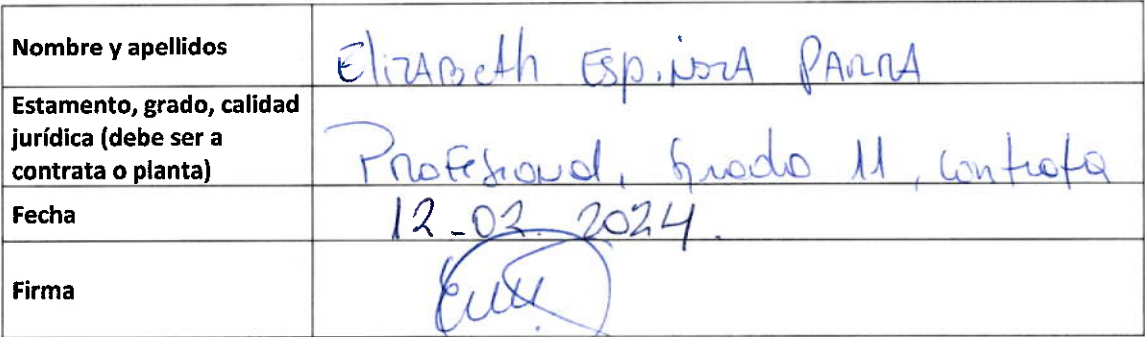 Nombre y apellidos
ElizABeth Espinoza PARRA
Estamento, grado, calidad
jurídica (debe ser a
contrata o planta)
Profesional, Grado 11, contrata
Fecha
12-02-2024.
Firma